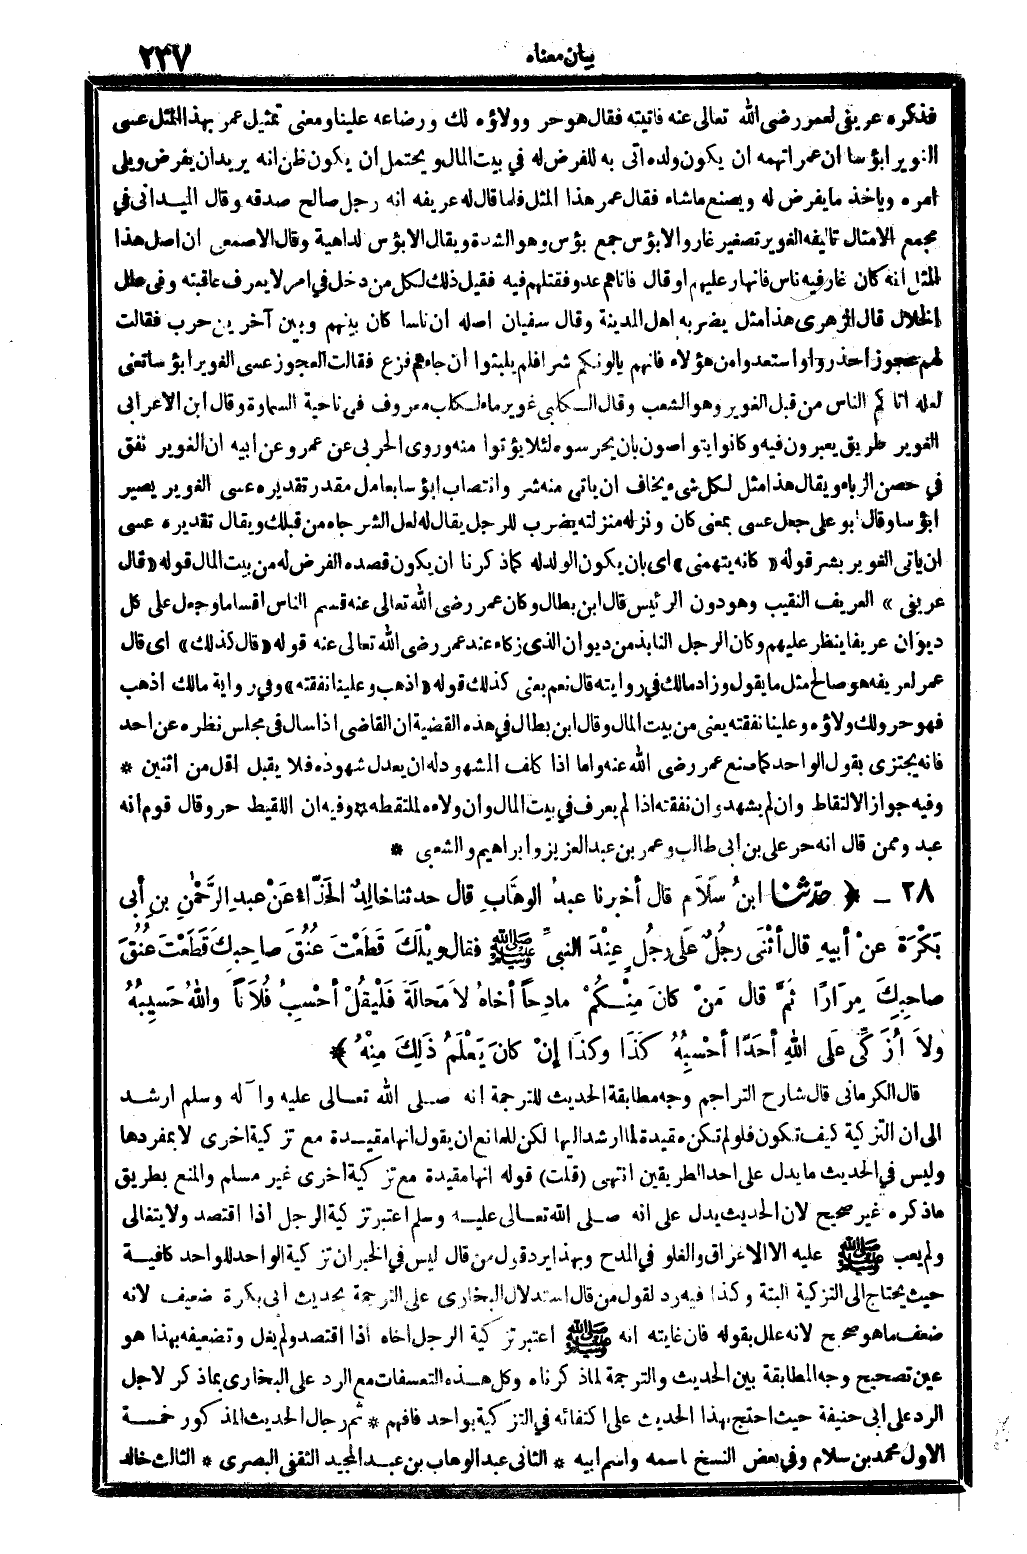 بيان معناه ٢٣٧
فذكره عريفى لعمر رضى الله تعالى عنه فاتيته فقال هو حر وولاؤه لك ورضاعه علينا ومعنى تمثيل عمر بهذا المثل عسى
الغوير ابؤسا ان عمر اتهمه ان يكون ولده اتى به للفرض له في بيت المال ويحتمل ان يكون ظن انه يريد ان يفرض ويلى
امره وياخذ ما يفرض له ويصنع ماشاء فقال عمر هذا المثل فلما قال له عريفه انه رجل صالح صدقه وقال الميدانى في
مجمع الامثال تاليفه الغوير تصغير غار والابؤس جمع بؤس وهو الشدة ويقال الابؤس لداهية وقال الاصمعى ان اصل هذا
المثل انه كان غار فيه ناس فانهار عليهم او قال فاتاهم عدو فقتلهم فيه فقيل ذلك لكل من دخل في امر لا يعرف عاقبته وفى علل
الخلال قال الزهرى هذا مثل يضربه اهل المدينة وقال سفيان اصله ان ناسا كان بينهم وبين آخرين حرب فقالت
لهم عجوز احذروا واستعدوا من هؤلاء فانهم يالونكم شرا فلم يلبثوا ان جاءهم فزع فقالت العجوز عسى الغوير ابؤسا تعنى
لعله اتاكم الناس من قبل الغوير وهو الشعب وقال الكلبي غوير ماء لكلب معروف في ناحية السماوة وقال ابن الاعرابى
الغوير طريق يعبرون فيه وكانوا يتواصون بان يحرسوه لئلا يؤتوا منه وروى الحربى عن عمرو عن ابيه ان الغوير نفق
في حصن الزباء ويقال هذا مثل لكل شىء يخاف ان ياتى منه شر وانتصاب ابؤسا بعامل مقدر تقديره عسى الغوير يصير
ابؤسا وقال ابو على جعل عسى بمعنى كان ونزله منزلته يضرب للرجل يقال له لعل الشر جاء من قبلك ويقال تقديره عسى
ان ياتى الغوير بشر قوله « كانه يتهمنى » اى بان يكون الولد له كما ذكرنا ان يكون قصده الفرض له من بيت المال قوله « قال
عريفى » العريف النقيب وهو دون الرئيس قال ابن بطال وكان عمر رضى الله تعالى عنه قسم الناس اقساما وجعل على كل
ديوان عريفا ينظر عليهم وكان الرجل النابذ من ديوان الذى زكاه عند عمر رضى الله تعالى عنه قوله « قال كذلك » اى قال
عمر لعريفه هو صالح مثل ما يقول وزاد مالك في روايته قال نعم يعنى كذلك قوله « اذهب وعلينا نفقته » وفي رواية مالك اذهب
فهو حر ولك ولاؤه وعلينا نفقته يعنى من بيت المال وقال ابن بطال في هذه القضية ان القاضى اذا سال في مجلس نظره عن احد
فانه يجتزى بقول الواحد كما صنع عمر رضى الله عنه واما اذا كلف المشهود له ان يعدل شهوده فلا يقبل اقل من اثنين *
وفيه جواز الالتقاط وان لم يشهد وان نفقته اذا لم يعرف في بيت المال وان ولاءه لملتقطه * وفيه ان اللقيط حر وقال قوم انه
عبد وممن قال انه حر على بن ابى طالب وعمر بن عبد العزيز وابراهيم والشعبى *
٢٨ ـ ﴿ حَدَّثنا ابنُ سَلَامٍ قال أخبرنا عبدُ الوهَّابِ قال حدثنا خالِدٌ الحَذَّاءُ عَنْ عبدِ الرَّحْمٰنِ بنِ أبى
بَكْرَةَ عنْ أبيهِ قال أثْنَى رجُلٌ عَلَى رجُلٍ عِنْدَ النبيِّ ﷺ فقال ويْلَكَ قَطَعْتَ عُنُقَ صاحِبِكَ قَطَعْتَ عُنُقَ
صاحِبِكَ مِرَارًا ثمَّ قال مَنْ كانَ مِنْكُمْ مادِحاً أخاهُ لاَ مَحالَةَ فَلْيَقُلْ أحْسِبُ فُلَاناً واللهُ حَسِيبُهُ
ولاَ اُزَكِّى عَلَى اللهِ أحَدًا أحْسِبُهُ كَذَا وكَذا إنْ كانَ يَعْلَمُ ذَلِكَ مِنْهُ ﴾*
قال الكرمانى قال شارح التراجم وجه مطابقة الحديث للترجمة انه صلى الله تعالى عليه وآله وسلم ارشد
الى ان التزكية كيف تكون فلو لم تكن مقيدة لما ارشد اليها لكن للمانع ان يقول انها مقيدة مع تزكية اخرى لا بمفردها
وليس في الحديث ما يدل على احد الطريقين انتهى (قلت) قوله انها مقيدة مع تزكية اخرى غير مسلم والمنع بطريق
ماذكره غير صحيح لان الحديث يدل على انه صلى الله تعالى عليه وسلم اعتبر تزكية الرجل اذا اقتصد ولا يتغالى
ولم يعب ﷺ عليه الا الاغراق والغلو في المدح وبهذا يرد قول من قال ليس في الخبر ان تزكية الواحد للواحد كافية
حيث يحتاج الى التزكية البتة وكذا فيه رد لقول من قال استدلال البخارى على الترجمة بحديث أبى بكرة ضعيف لانه
ضعف ما هو صحيح لانه علل بقوله فان غايته انه ﷺ اعتبر تزكية الرجل اخاه اذا اقتصد ولم يغل وتضعيفه بهذا هو
عين تصحيح وجه المطابقة بين الحديث والترجمة لما ذكرناه وكل هذه التعسفات مع الرد على البخارى بما ذكر لاجل
الرد على ابى حنيفة حيث احتج بهذا الحديث على اكتفائه في التزكية بواحد فافهم * ثم رجال الحديث المذكور خمسة
الاول محمد بن سلام وفي بعض النسخ باسمه واسم ابيه * الثانى عبد الوهاب بن عبد المجيد الثقفى البصرى * الثالث خالد